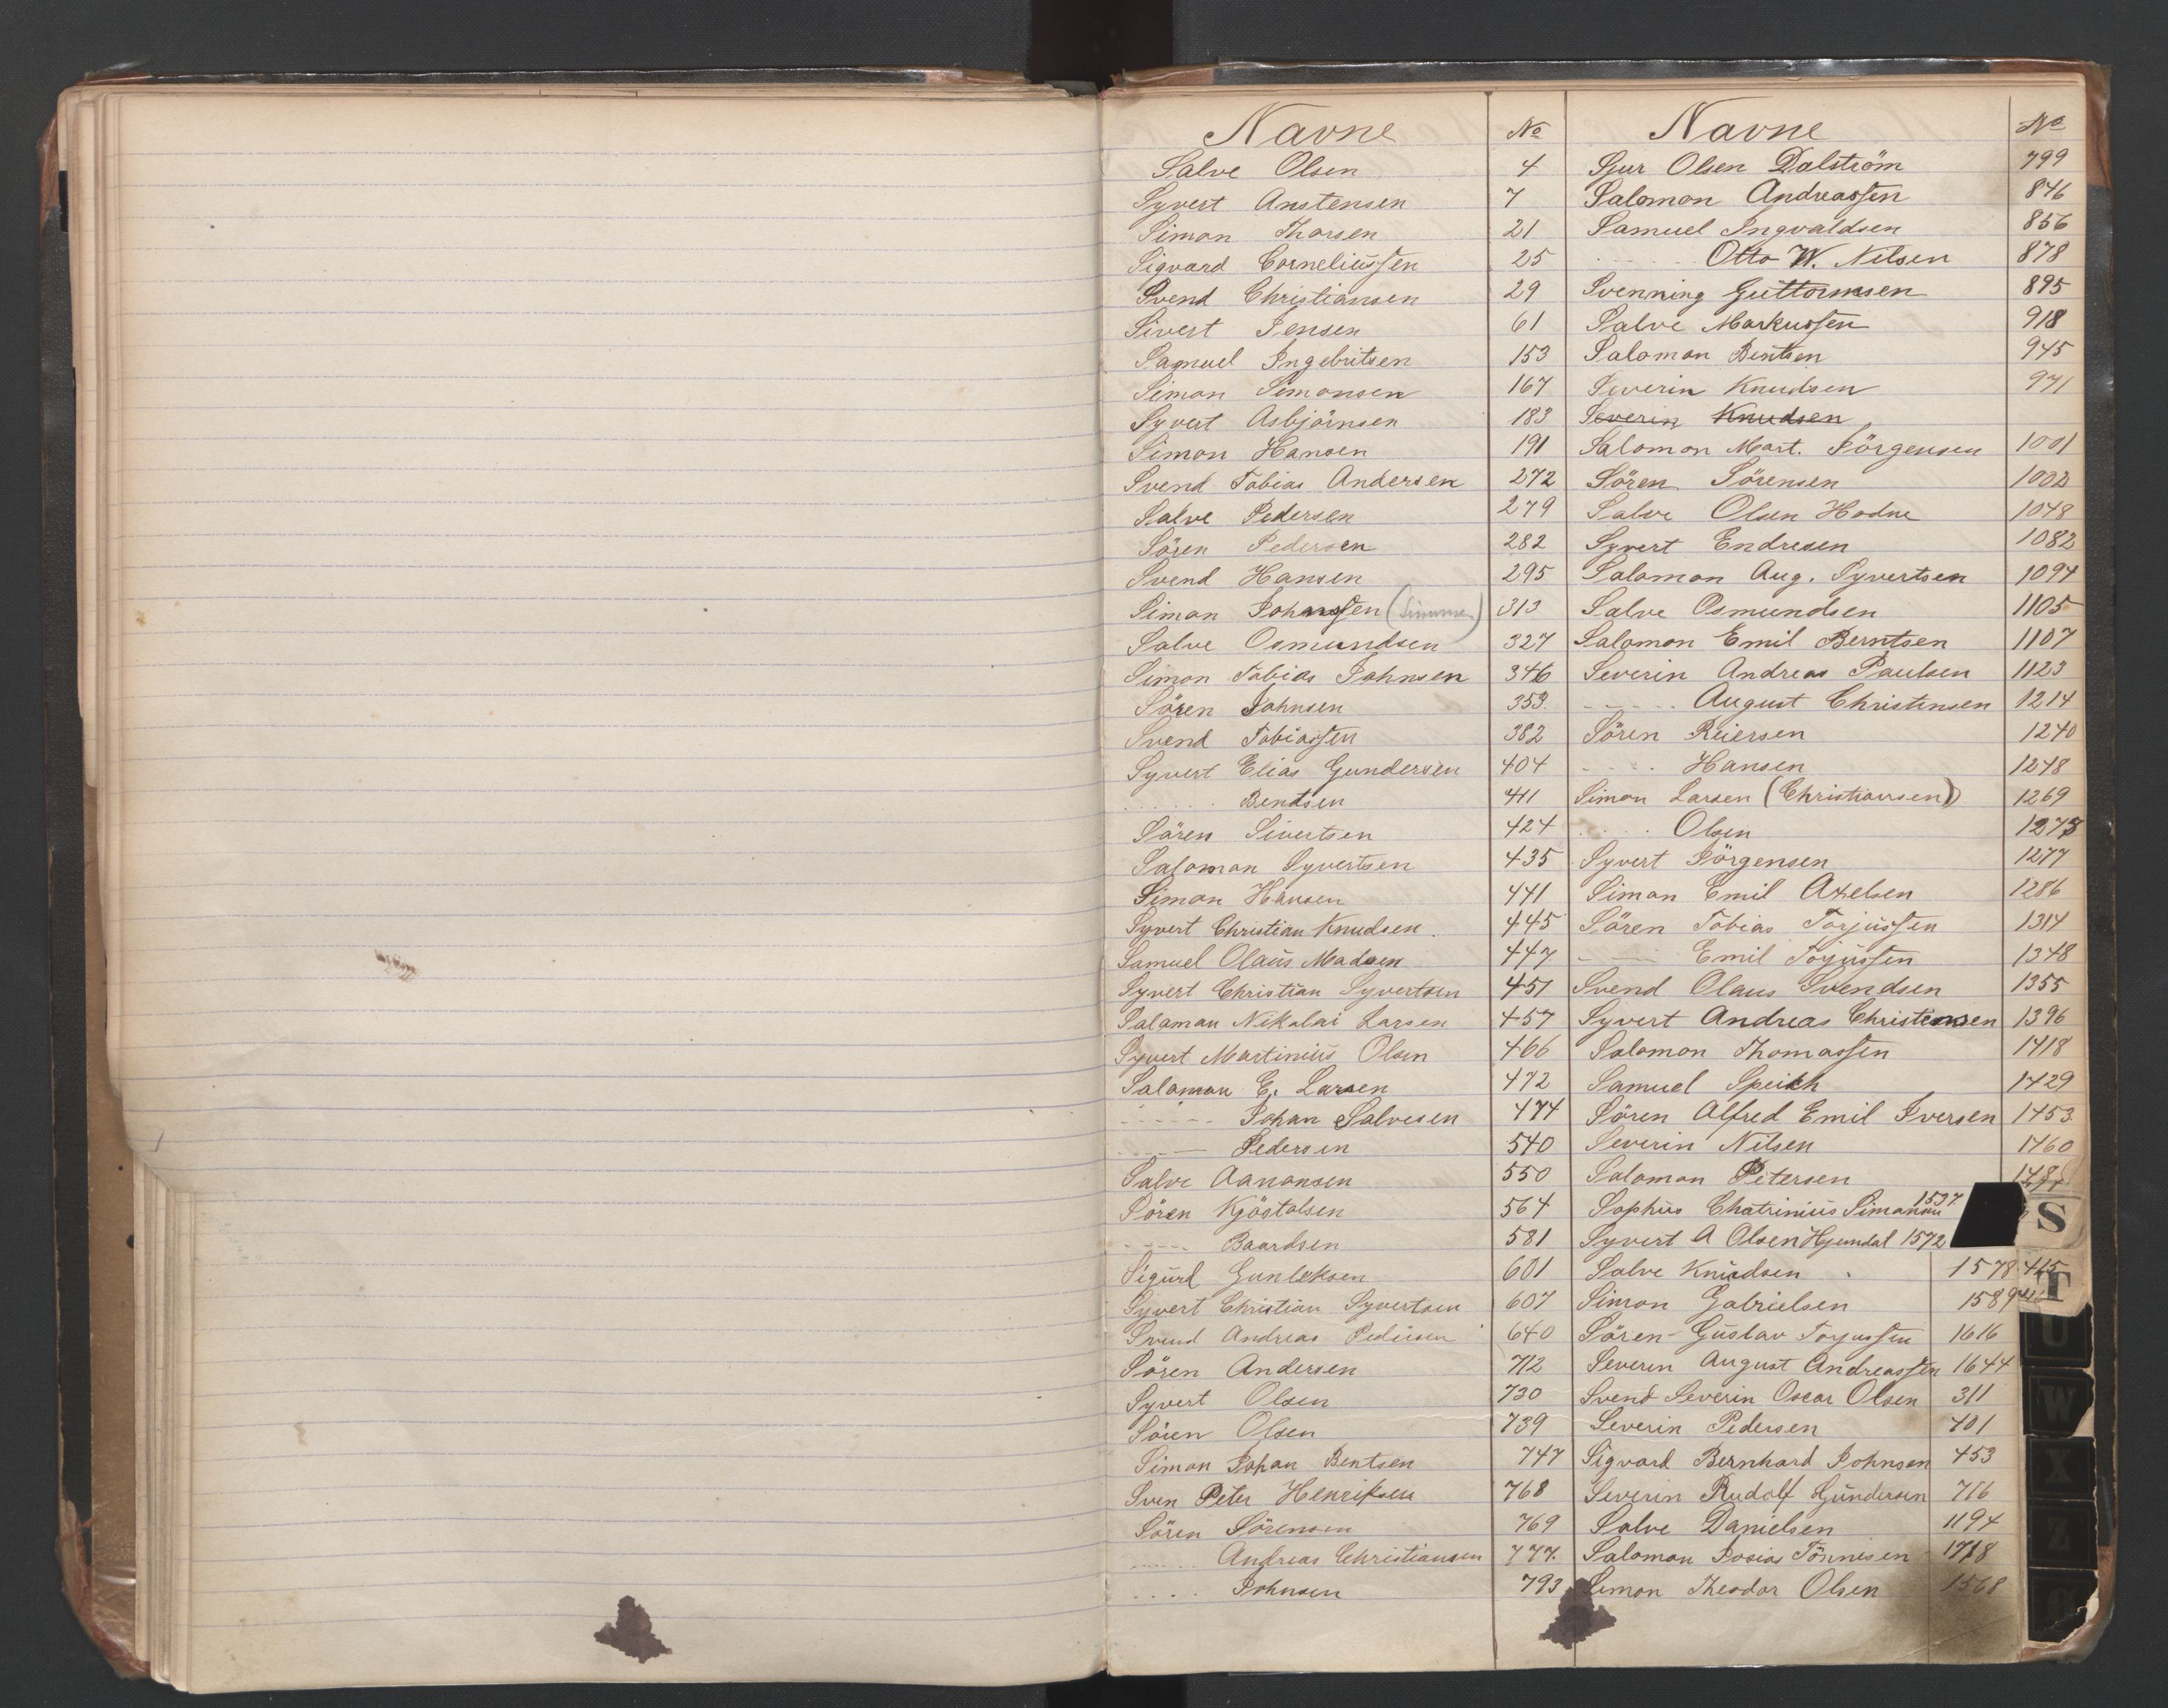 Navne No
Salve Olsen 4
Syvert Anstensen 7
Simon Thorsen 21
Sigvard Corneliussen 25
Svend Christiansen 29
Sivert Jensen 61
Samuel Ingebritsen 153
Simon Simonsen 167
Syvert Asbjörnsen 183
Simon Hansen 191
Svend Tobias Andersen 272
Salve Pedersen 279
Sören Pedersen 282
Svend Hansen 295
Simon Johnssen 313
Salve Osmundsen 327
Simon Tobias Johnsen 346
Sören Johnsen 353
Svend Tobiassen 382
Syvert Elias Gundersen 404
...... Bendsen 411
Sören Sivertsen 424
Salomon Syvertsen 435
Simon Hansen 441
Syvert Christian Knudsen. 445
Samuel Olaus Madsen 447
Syvert Christian Syvertsen 451
Salomon Nikolai Larsen 457
Syvert Martinius Olsen 466
Salomon E. Larsen 472
------ Johan Salvesen 474
------ Pedersen 540
Salve Aanonsen 550
Sören Kjöstolsen 564
----- Baardsen 581
Sigurd Gunleksen 601
Syvert Christian Syvertsen 607
Svend Andreas Pedersen 640
Sören Andersen 712
Syvert Olsen 730
Sören Olsen 739
Simon Johan Bentsen 747
Sven Peter Henriksen 768
Sören Sörensen 769
...... Andreas Christiansen 777.
.... Johnsen 793
Navne No
Sjur Olsen Dalström 799
Salomon Andreassen 846
Samuel Ingvaldsen 856
------ Otto W. Nilsen 878
Svenning Guttormsen 895
Salve Markussen 918
Salomon Bentsen 945
Severin Knudsen 971
Severin Knudsen
Salomon Mart. Jörgensen 1001
Sören Sörensen 1002
Salve Olsen Hodne 1048
Syvert Endresen 1082
Salomon Aug. Syvertsen 1094
Salve Osmundsen 1105
Salomon Emil Berntsen 1107
Severin Andreas Paulsen 1123
------ August Christensen 1214
Sören Reiersen 1240
---- Hansen 1248
Simon Larsen (Christiansen) 1269
.... Olsen 1273
Syvert Jörgensen 1277
Simon Emil Axelsen 1286
Sören Tobias Torjussen 1314
---- Emil Torjussen 1348
Svend Olaus Svendsen 1355
Syvert Andreas Christensen 1396
Salomon Thomassen 1418
Samuel Speich 1429
Sören Alfred Emil Iversen 1453
Severin Nilsen 1460
Salomon Petersen
Sophus Chatrinius Simonsen 1537
Syvert A Olsen Hjemdal 1572
S
Salve Knudsen 1578 415
T
Simon Gabrielsen 1589
Sören Gustav Torjussen 1616
U
Severin August Andreassen 1644
Svend Severin Oscar Olsen 311
W
Severin Pedersen 401
Sigvard Bernhard Johnsen 453
X
Severin Rudolf Gundersen 716
Salve Danielsen 1194
Z
Salomon Josias Tönnesen 1718
Simon Theodor Olsen 1568